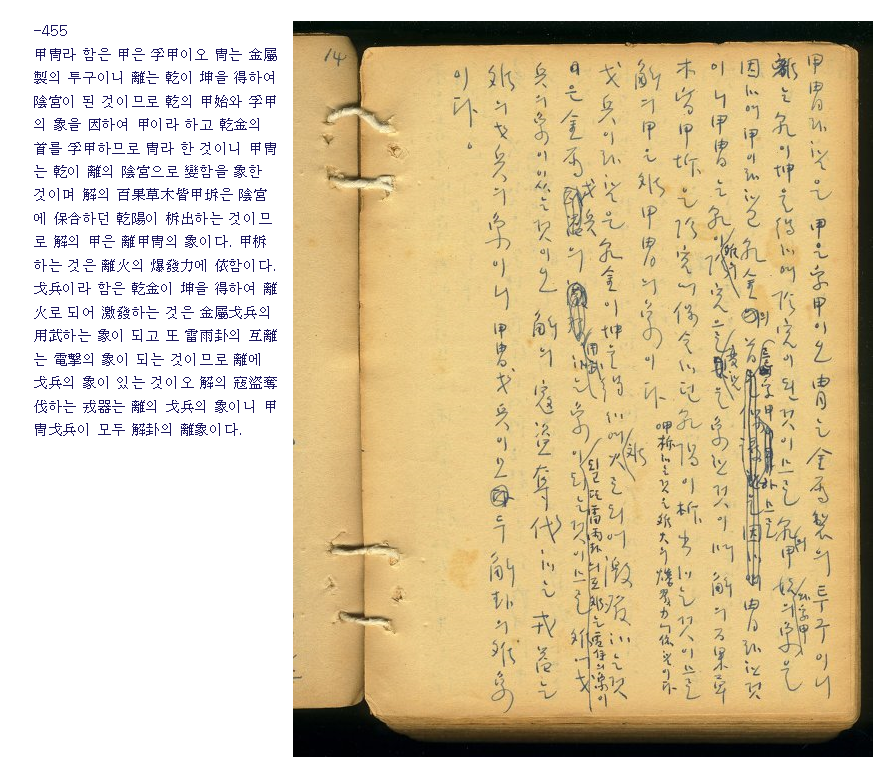 -455
甲冑라 함은 甲은 孚甲이오 冑는 金屬
製의 투구이니 離는 乾이 坤을 得하여
陰宮이 된 것이므로 乾의 甲始와 孚甲
의 象을 因하여 甲이라 하고 乾金의
首를 孚甲하므로 冑라 한 것이니 甲冑
는 乾이 離의 陰宮으로 變함을 象한
것이며 解의 百果草木皆甲坼은 陰宮
에 保合하던 乾陽이 柝出하는 것이므
로 解의 甲은 離甲冑의 象이다. 甲柝
하는 것은 離火의 爆發力에 依함이다.
戈兵이라 함은 乾金이 坤을 得하여 離
火로 되어 激發하는 것은 金屬戈兵의
用武하는 象이 되고 또 雷雨卦의 互離
는 電擊의 象이 되는 것이므로 離에
戈兵의 象이 있는 것이오 解의 寇盜奪
伐하는 戎器는 離의 戈兵의 象이니 甲
冑戈兵이 모두 解卦의 離象이다.
14
甲冑라 함은 甲은 孚甲이오 冑는 金屬製의 투구이니
離는 乾이 坤을 得하여 陰宮이 된 것이므로 乾의 甲始와 孚甲의 象을
因하여 甲이라 하고 乾金의 首를 孚甲하므로 冑라 한 것
이니 甲冑는 乾이 離의 陰宮으로 變함을 象한 것이며 解의 百果草
木皆甲坼은 陰宮에 保合하던 乾陽이 柝出하는 것이므로
解의 甲은 離甲冑의 象이다. 甲柝하는 것은 離火의 爆發力에 依함이다
戈兵이라 함은 乾金이 坤을 得하여 離火로 되어 激發하는 것
은 金屬戈兵의 用武하는 象이 되고 또 雷雨卦의 互離는 電擊의 象이 되는 것이므로 離에 戈
兵의 象이 있는 것이오 解의 寇盜奪伐하는 戎器는
離의 戈兵의 象이니 甲冑戈兵이 모두 解卦의 離象
이다.